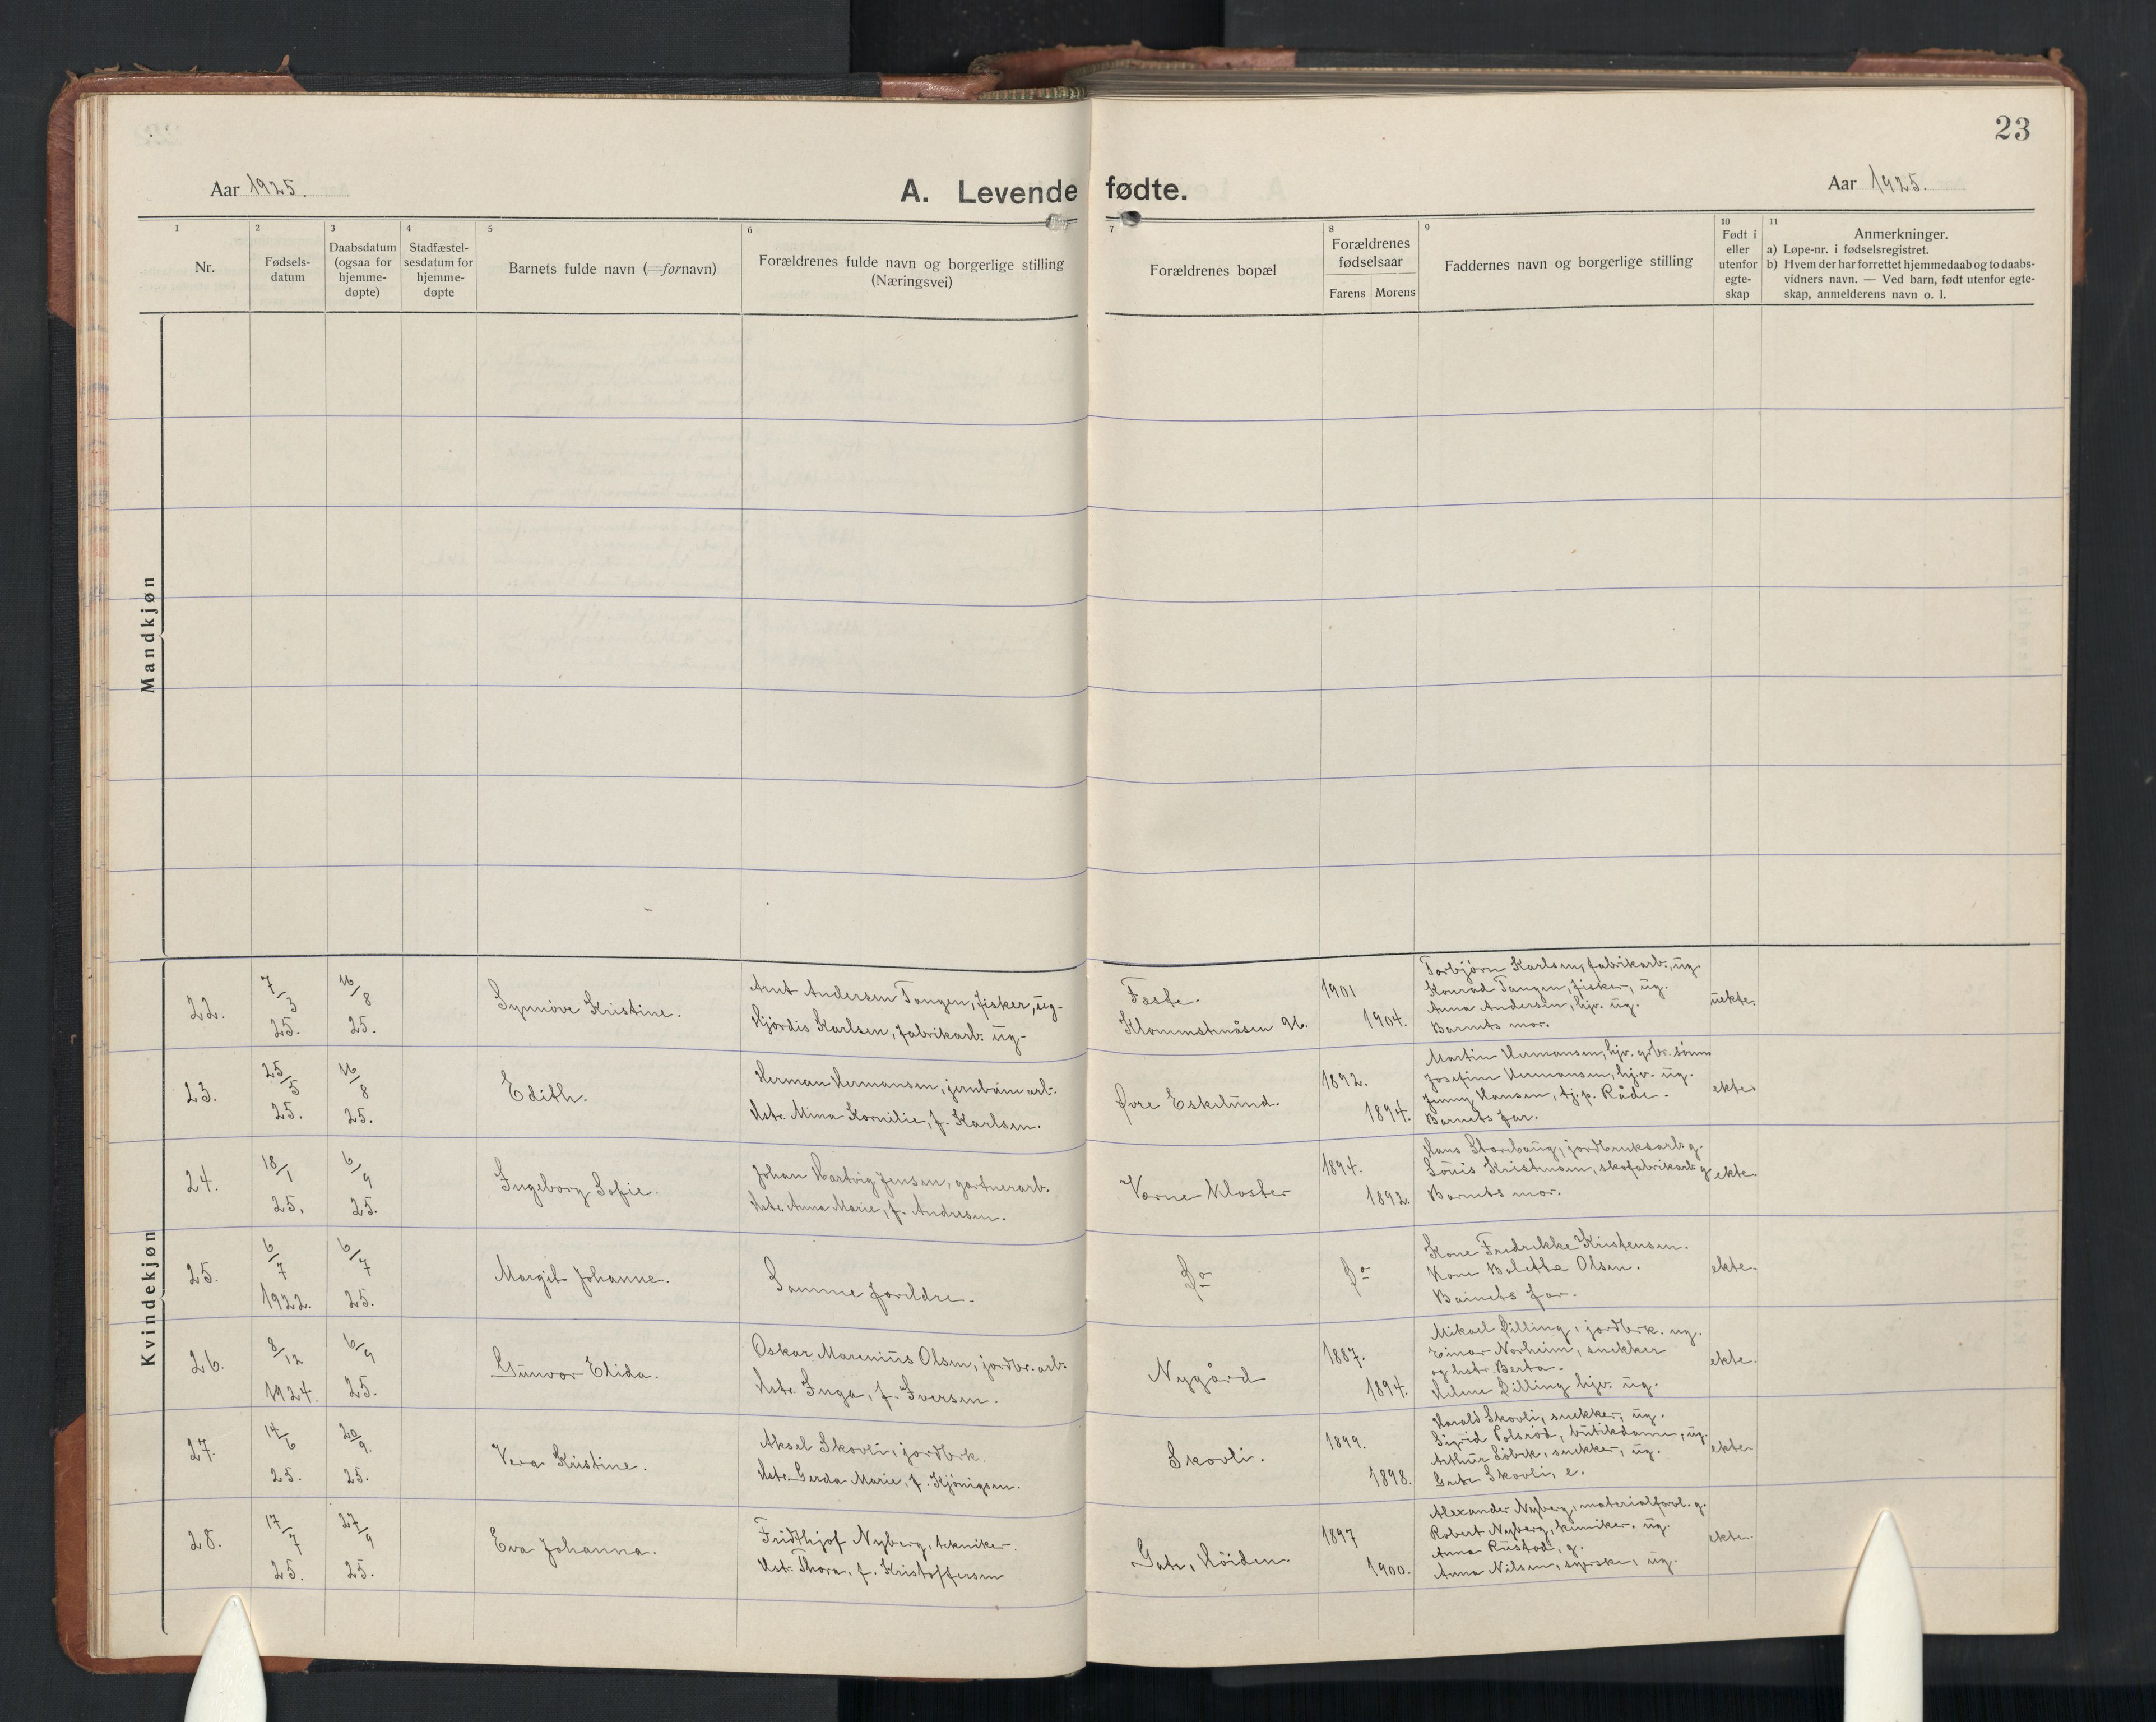 23
Aar 1925.
A. Levende fødte.
Aar 1925.
1
2
3
4
5
6
7
8
9
10
11
Nr.
Fødsels-
datum
Daabsdatum
(ogsaa for
hjemme-
døpte)
Stadfæstel-
sesdatum for
hjemme-
døpte
Barnets fulde navn (=fornavn)
Forældrenes fulde navn og borgerlige stilling
(Næringsvei)
Forældrenes bopæl
Forældrenes
fødselsaar
Farens
Morens
Faddernes navn og borgerlige stilling
Født i
eller
utenfor
egte-
skap
Anmerkninger.
a) Løpe-nr. i fødselsregistret.
b) Hvem der har forrettet hjemmedaab og to daabs-
vidners navn. — Ved barn, født utenfor egte-
skap, anmelderens navn o. l.
Mandkjøn
Kvindekjøn
22.
7/3
25.
16/8
25.
Synnöve Kristine.
Arnt Andersen Tangen, fisker, ug.
Hjördis Karlsen, fabrikarb. ug.
Faste.
Klommstnåsen 96.
1901
1904.
Torbjörn Karlsen, fabrikarb., ug.
Konrad Tangen, fisker, ug.
Anna Andersen, hjv. ug.
Barnets mor.
uekte.
23.
25/5
25.
16/8
25.
Edith.
Herman Hermansen, jernbanearb.
Hstr. Mina Kornilie, f. Karlsen.
Øvre Eskelund.
1892.
1894.
Martin Hermansen, hjv. grbr. sønn
Josefine Hermansen, hjv. ug.
Jenny Hansen, tj.p. Råde.
Barnets far.
ekte.
24.
18/1
25.
6/9
25.
Ingeborg Sofie.
Johan Hartvig Jensen, gartnerarb.
Hstr. Anna Marie, f. Andresen.
Værne Kloster
1894.
1892.
Hans Storebaug, jordbruksarb. g.
Louis Kristensen, skofabrikarb. g.
Barnets mor.
ekte.
25.
6/7
1922.
6/7
25.
Margit Johanne.
Samme foreldre.
Do
Do
Kone Fredrikke Kristensen.
Kone Bolette Olsen.
Barnets far.
ekte.
26.
8/12
1924.
6/9
25.
Gunvor Elida.
Oskar Marenius Olsen, jordbr. arb.
Hstr. Inga, f. Iversen.
Nygård
1887.
1894.
Mikael Dilling, jordbrk. ug.
Einar Norheim, snekker
og hstr. Berta.
Helene Dilling hjv. ug.
ekte.
27.
14/6
25.
20/9.
25.
Vera Kristine.
Aksel Skovli, jordbrk.
Hstr. Gerda Marie, f. Kjönigsen.
Skovli.
1899.
1898.
Harald Skovli, snekker, ug.
Sigrid Solsröd, butikdame, ug.
Arthur Löbek, snekker, ug.
Skovli, e.
ekte
28.
17/7
25.
27/9
25.
Eva Johanna.
Fridthjof Nyberg, tekniker.
Hstr. Thora, f. Kristoffersen
Gate, Höiden.
1897
1900.
Alexander Nyberg, materialforv. g.
Robert Nyberg, kemiker, ug.
Anna Rustad, g.
Anna Nilsen, syerske, ug.
ekte.